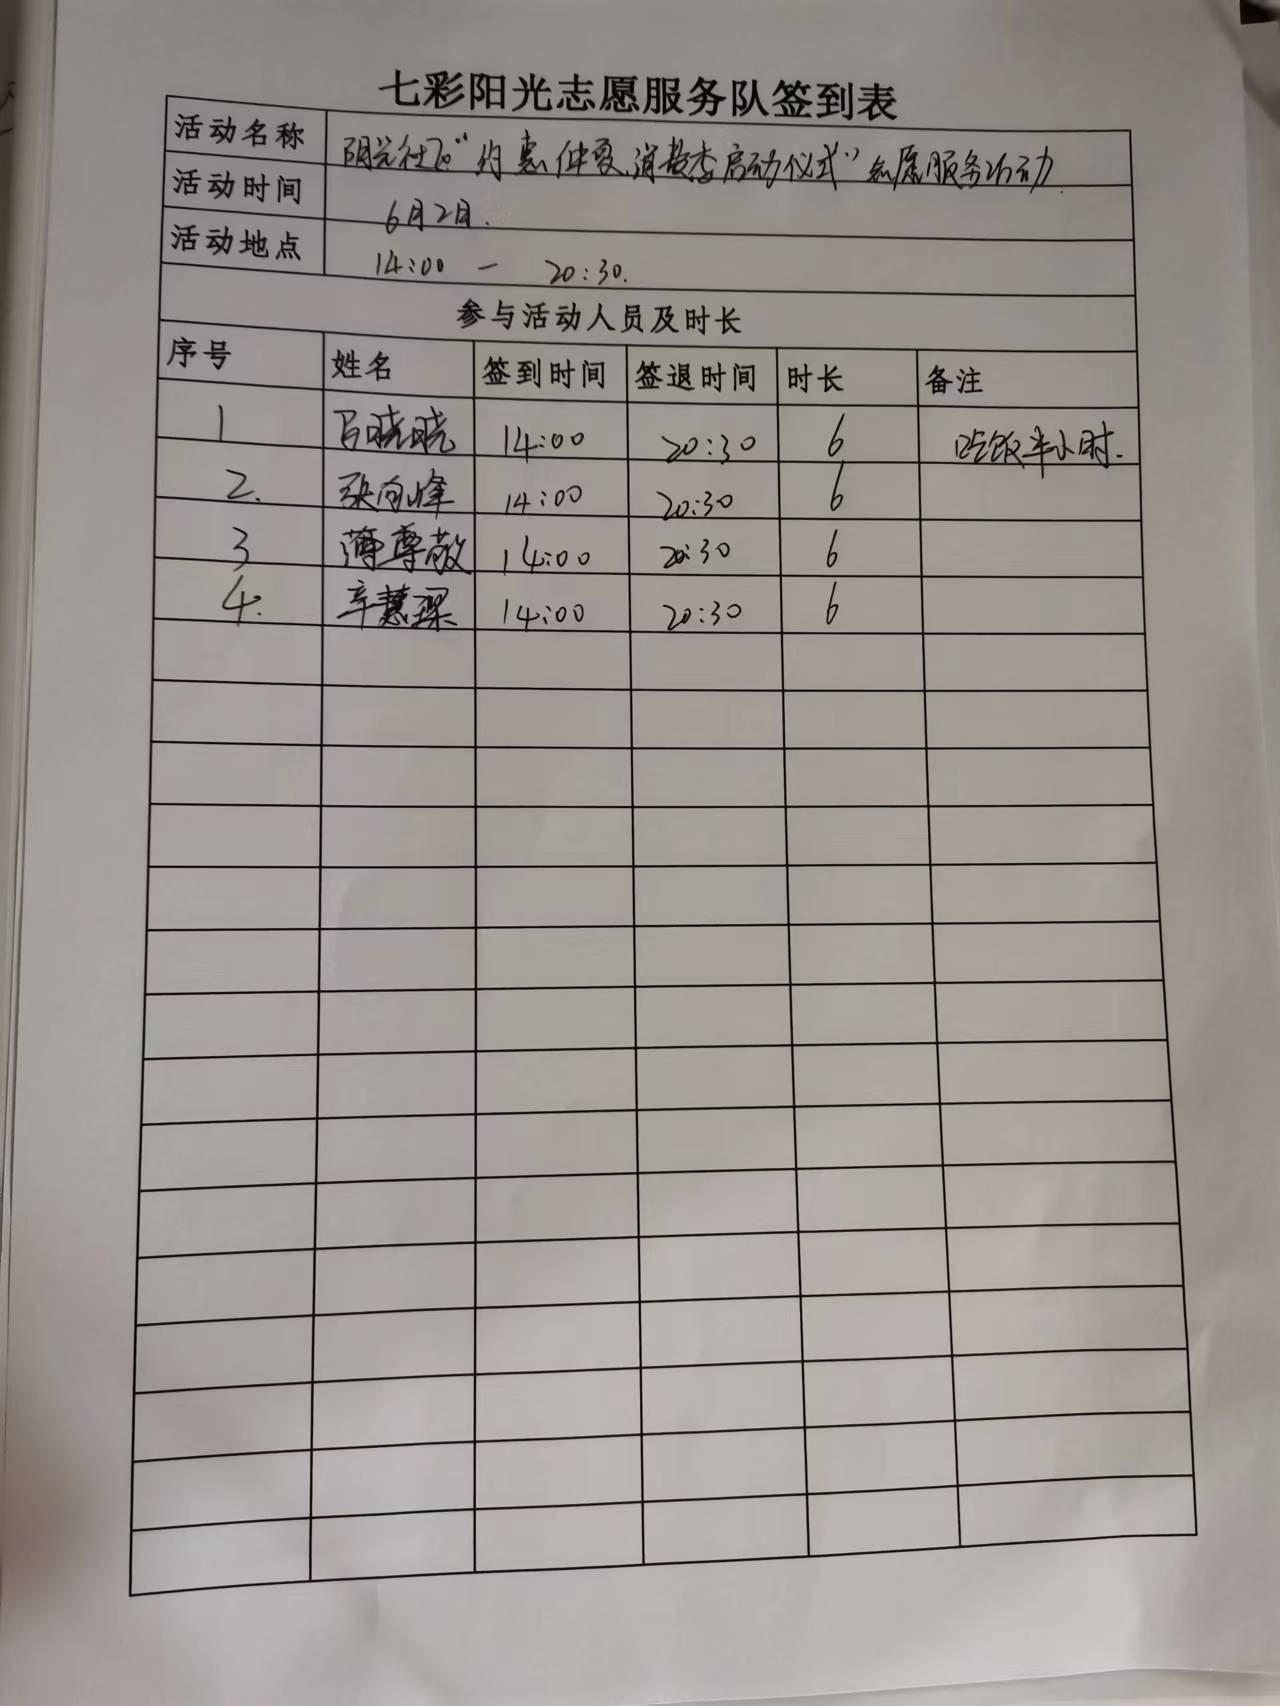 七彩阳光志愿服务队签到表
活动名称 阳光社区“约惠仲夏、消费季启动仪式”志愿服务活动
活动时间 6月2日.
活动地点 14:00 — 20:30.
参与活动人员及时长
序号 姓名 签到时间 签退时间 时长 备注
1 马晓晓 14:00 20:30 6 吃饭半小时.
2. 张向峰 14:00 20:30 6
3 薄尊敬 14:00 20:30 6
4. 辛慧 14:00 20:30 6